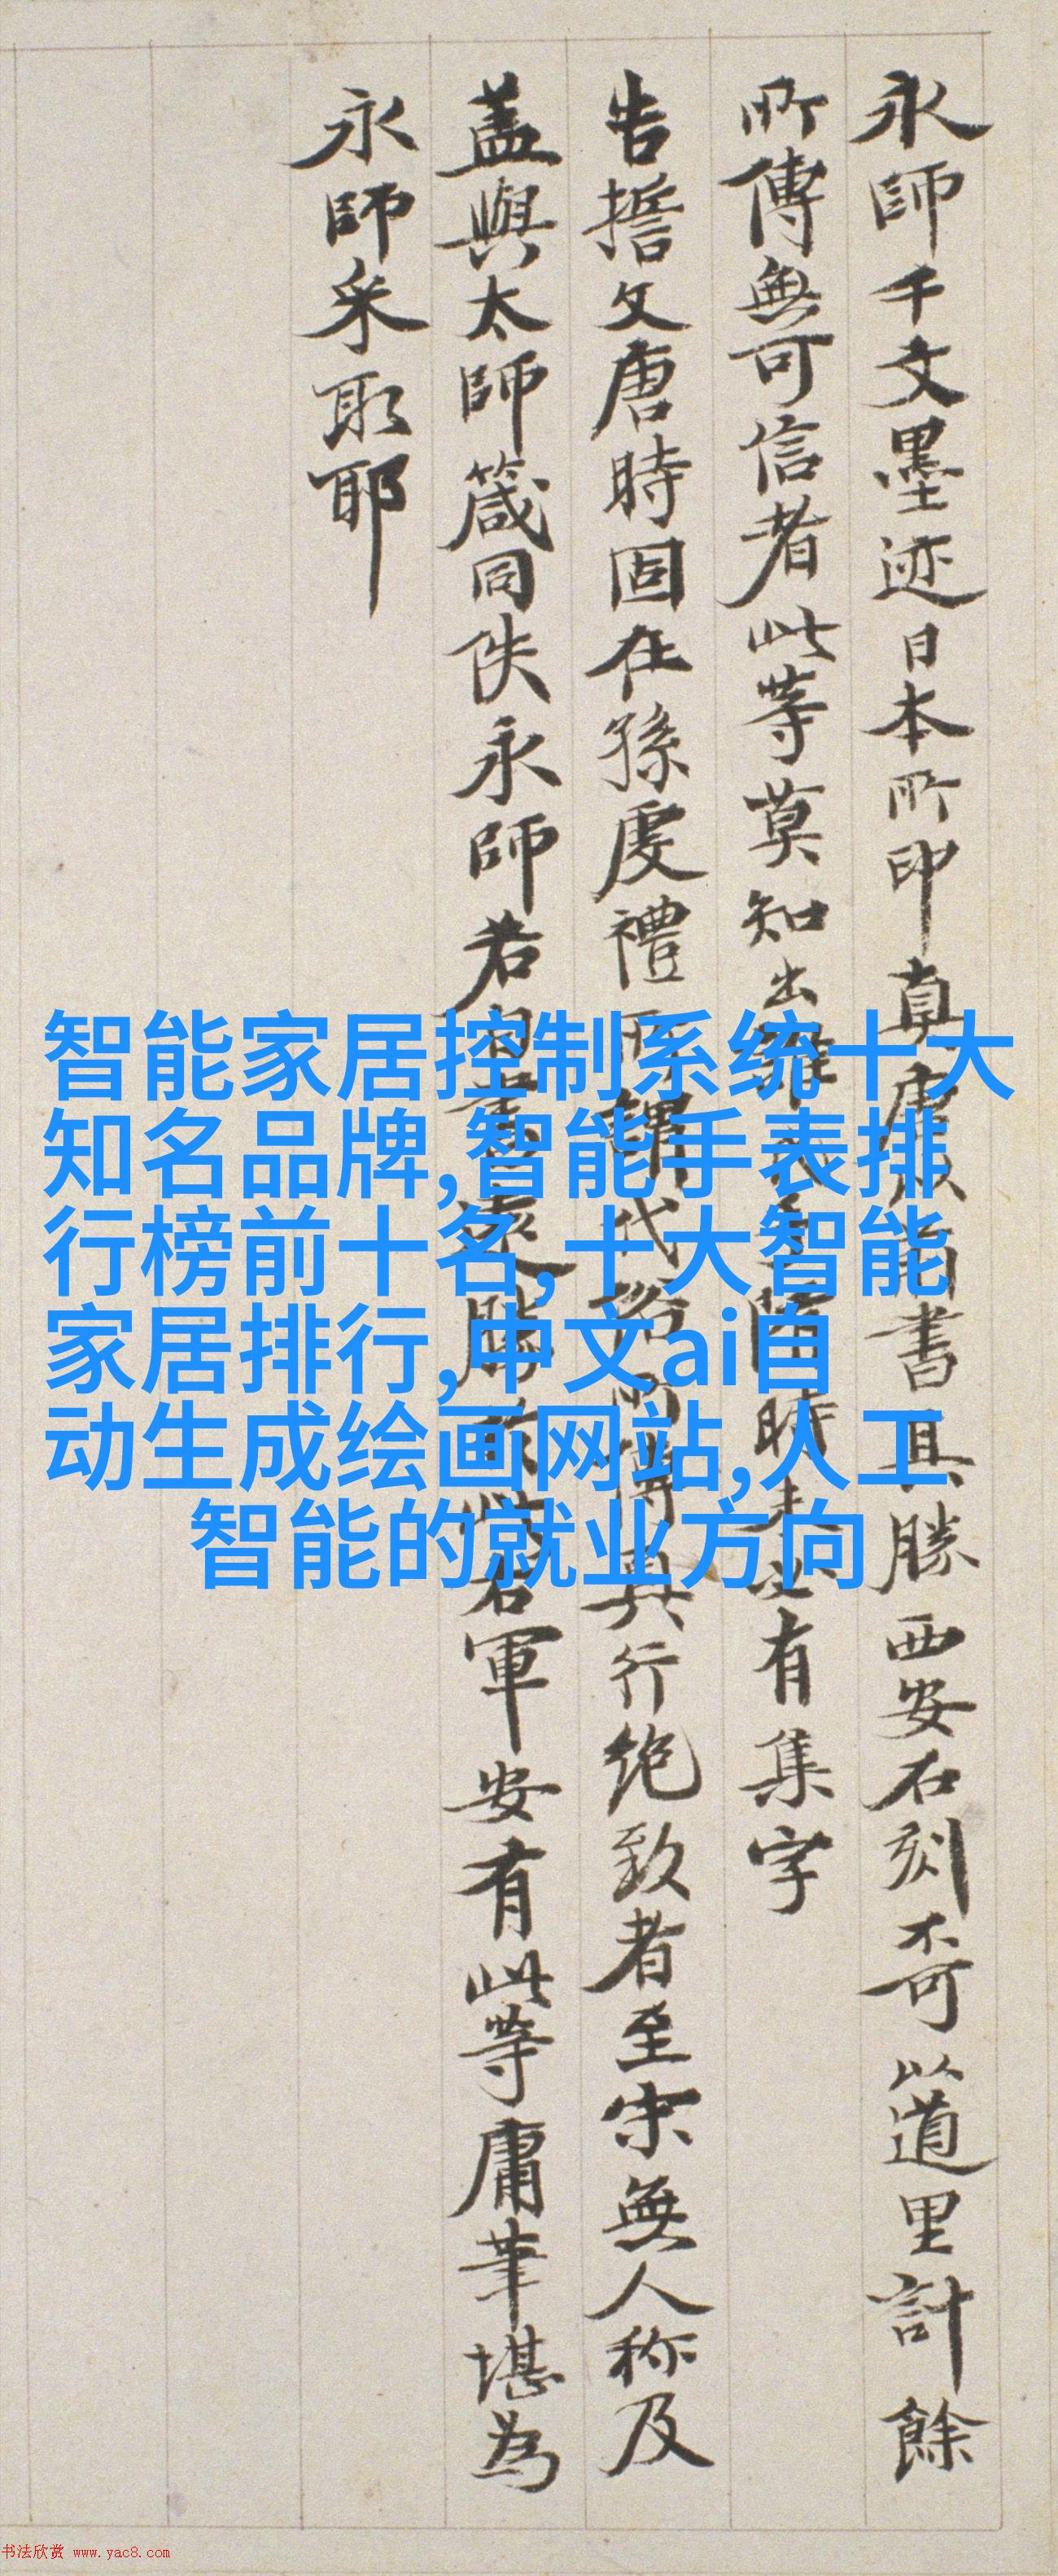 永師千文墨迹日本所印真
書真勝西安石刻不可以道里計餘
所傳無可信者此等莫知出
時未必有集字
告誓文唐時固在孫虔禮
行绝致者至宋無人称及
盖與太師箴同佚永師若
軍安有此等庸筆堪為
永師采取耶
智能家居控制系统十大
知名品牌,智能手表排
行榜前十名,十大智能
家居排行,中文ai自
动生成绘画网站,人工
智能的就业方向
书法欣赏 www.yac8.com